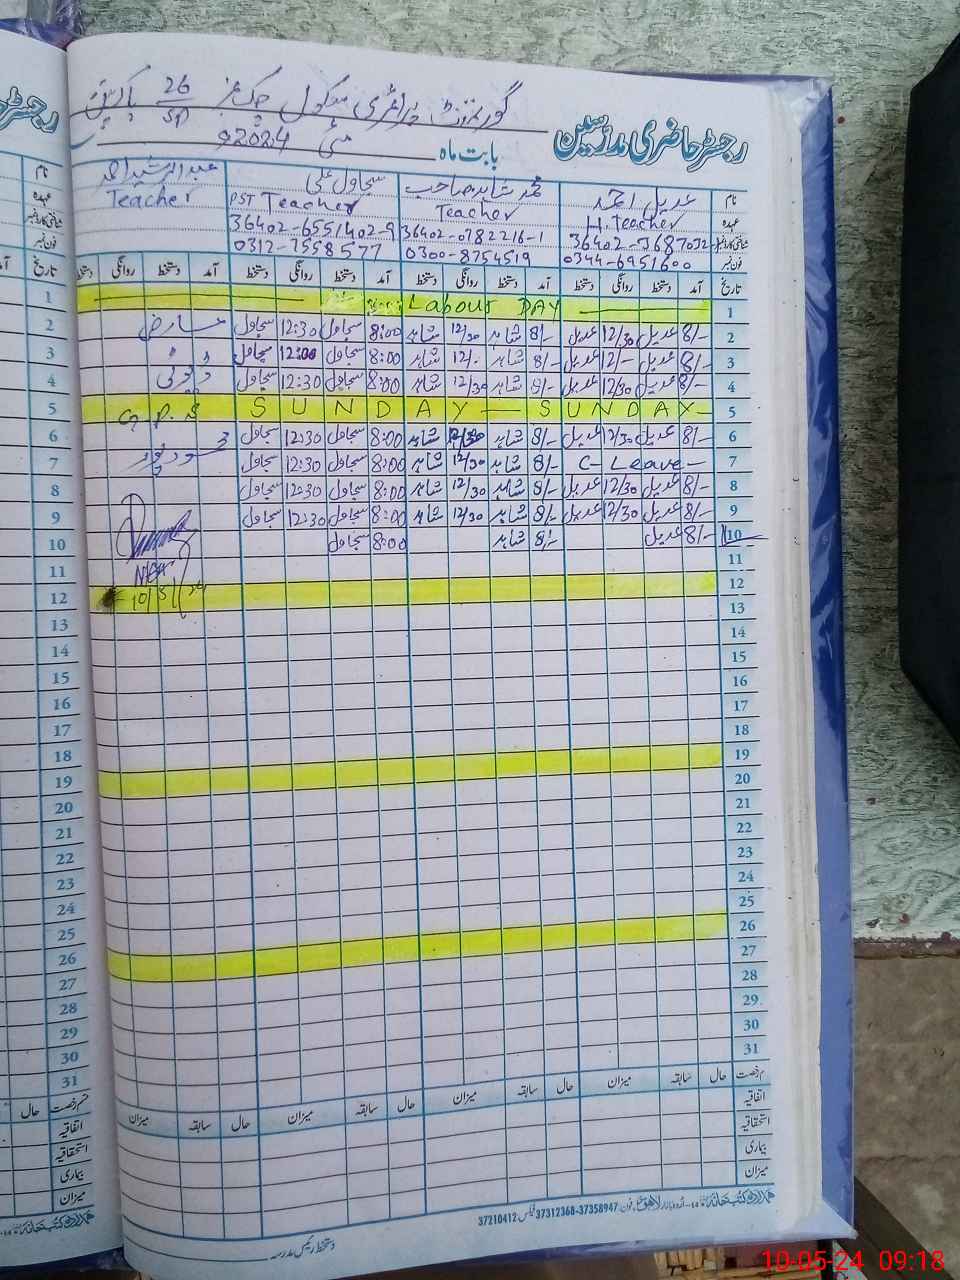 رجسٹر حاضری مدرسین
گورنمنٹ پرائمری سکول چک نمبر 26/SP پاکپتن
بابت ماہ مئی 2024ء
نام عدیل احمد محمد شاہد صاحب سجاول علی عبدالرشید احمد
عہدہ H.Teacher Teacher PST Teacher Teacher
شناختی کارڈ نمبر 36402-7687032 36402-0782216-1 36402-6551402-9
فون نمبر 0344-6951600 0300-8754519 0312-7558577
تاریخ آمد دستخط روانگی دستخط آمد دستخط روانگی دستخط آمد دستخط روانگی دستخط آمد دستخط روانگی دستخط
1 Labour DAY 1
2 8/- عدیل 12/30 عدیل 8/- شاہد 12/30 شاہد 8:00 سجاول 12:30 سجاول عارضی 2
3 8/- عدیل 12/- عدیل 8/- شاہد 12/- شاہد 8:00 سجاول 12:00 سجاول ڈیوٹی 3
4 8/- عدیل 12/30 عدیل 8/- شاہد 12/30 شاہد 8:00 سجاول 12:30 سجاول 4
5 G.P.S SUNDAY — SUNDAY 5
6 8/- عدیل 12/30 عدیل 8/- شاہد 12/30 شاہد 8:00 سجاول 12:30 سجاول 6
7 C-Leave 8/- شاہد 12/30 شاہد 8:00 سجاول 12:30 سجاول 7
8 8/- عدیل 12/30 عدیل 8/- شاہد 12/30 شاہد 8:00 سجاول 12:30 سجاول 8
9 8/- عدیل 12/30 عدیل 8/- شاہد 12/30 شاہد 8:00 سجاول 12:30 سجاول 9
10 8/- عدیل 8/- شاہد 8:00 سجاول 10
11 11
12 10/5/24 12
13 13
14 14
15 15
16 16
17 17
18 18
19 19
20 20
21 21
22 22
23 23
24 24
25 25
26 26
27 27
28 28
29 29
30 30
31 31
قسم رخصت حال سابقہ میزان حال سابقہ میزان حال سابقہ میزان حال سابقہ میزان
اتفاقیہ
استحقاقیہ
بیماری
میزان
ہمدرد کتب خانہ اردو بازار لاہور فون: 37358947-37312368 فیکس 37210412
دستخط رئیس مدرسہ
10-05-24 09:18